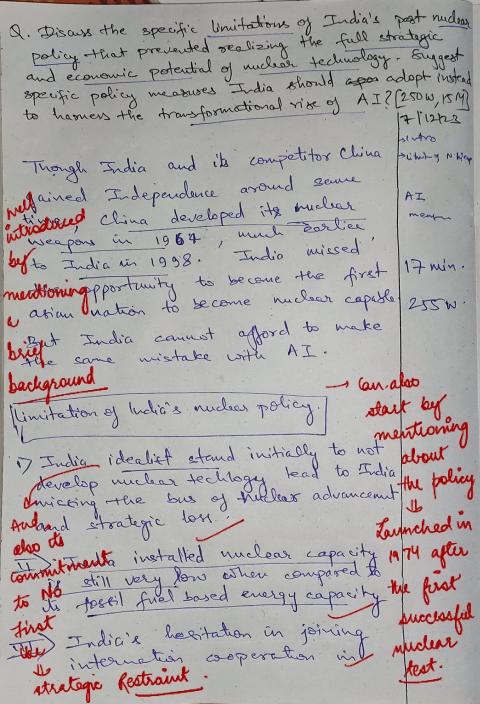 Q. Discuss the specific limitations of India's post nuclear
policy that prevented realizing the full strategic
and economic potential of nuclear technology. Suggest
specific policy measures India should adopt instead
to harness the transformational rise of AI? (250W, 15M)
7/12/23
→Intro
AI
17 min.
255 W.
Though India and its competitor China
gained Independence around same
time, China developed its nuclear
weapons in 1964, much earlier
to India in 1998. India missed
opportunity to become the first
asian nation to become nuclear capable
But India cannot afford to make
the same mistake with AI.
well
introduced
by
mentioning
a
brief
background
Limitation of India's nuclear policy.
→ Can also
start by
mentioning
about
the policy
⇓
Launched in
1974 after
the first
successful
nuclear
test.
i) India idealist stand initially to not
develop nuclear techlogy lead to India
missing the bus of nuclear advancement
and strategic loss.
And
also its
commitment
to NO
first
use
⇓
strategic Restraint.
II) India installed nuclear capacity
is still very low when compared to
its fossil fuel based energy capacity
III) India's hesitation in joining
internation cooperation in